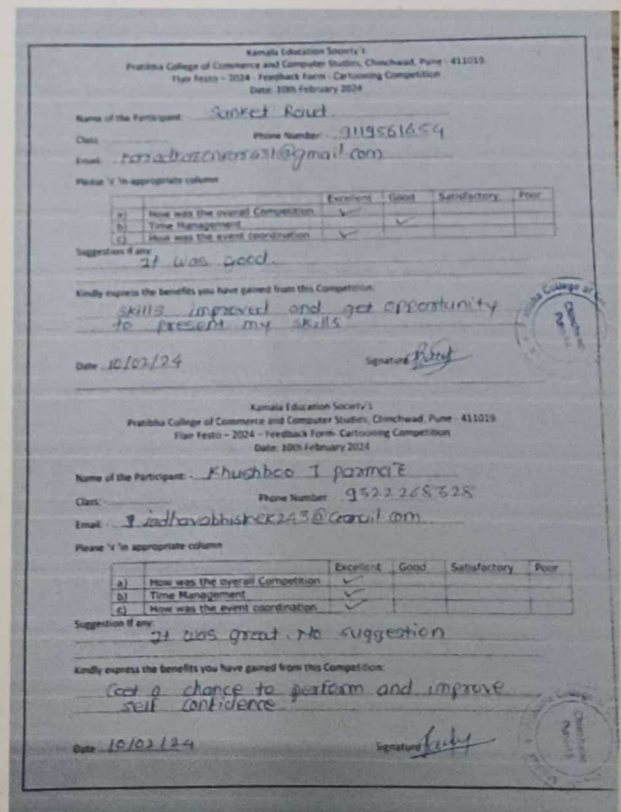 Kamala Education Society's
Pratibha College of Commerce and Computer Studies, Chinchwad, Pune - 411019
Flair Festo - 2024 - Feedback Form - Cartooning Competition
Date: 10th February 2024
Name of the Participant: Sanket Raut
Class: Phone Number: 9119561654
Email: @gmail.com
Please '√' in appropriate column
Excellent Good Satisfactory Poor
a) How was the overall Competition ✓
b) Time Management ✓
c) How was the event coordination ✓
Suggestion if any:
It was good.
Kindly express the benefits you have gained from this Competition:
skills improved and get opportunity
to present my skills
Date: 10/02/24 Signature
Kamala Education Society's
Pratibha College of Commerce and Computer Studies, Chinchwad, Pune - 411019
Flair Festo - 2024 - Feedback Form- Cartooning Competition
Date: 10th February 2024
Name of the Participant: Khushboo J
Class: Phone Number: 9322268328
Email:
Please '√' in appropriate column
Excellent Good Satisfactory Poor
a) How was the overall Competition ✓
b) Time Management ✓
c) How was the event coordination ✓
Suggestion if any:
It was great. No suggestion
Kindly express the benefits you have gained from this Competition:
Got a chance to perform and improve
self confidence
Date: 10/02/24 Signature